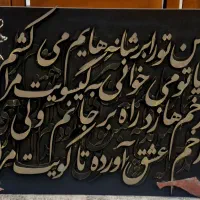 من تو را بر شانه هایم می کشم
یا تو می خوانی به گیسویت مرا
زخم ها زد راه بر جانم ولی
زخم عشق آورده تا کویت مرا